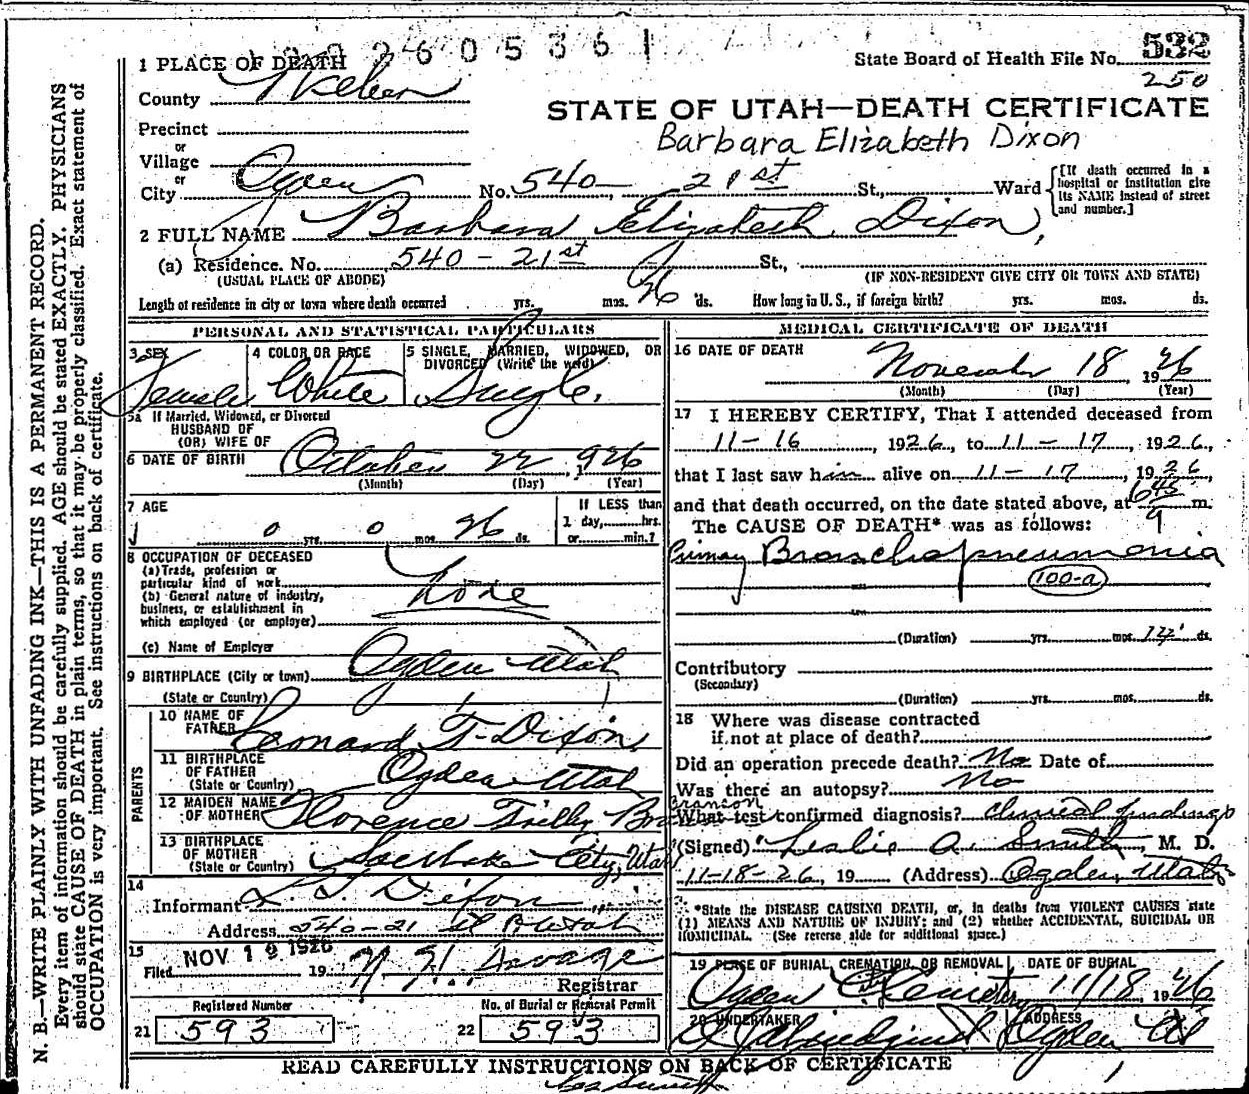 2605361
1 PLACE OF DEATH
State Board of Health File No. 532
250
County Weber
STATE OF UTAH—DEATH CERTIFICATE
Precinct
Barbara Elizabeth Dixon
or
Village
or
City Ogden No. 540 - 21st St., Ward
[If death occurred in a hospital or institution give its NAME instead of street and number.]
2 FULL NAME Barbara Elizabeth Dixon,
(a) Residence. No. 540 - 21st St.,
(USUAL PLACE OF ABODE) (IF NON-RESIDENT GIVE CITY OR TOWN AND STATE)
Length of residence in city or town where death occurred yrs. mos. 26 ds. How long in U. S., if foreign birth? yrs. mos. ds.
PERSONAL AND STATISTICAL PARTICULARS
3 SEX Female
4 COLOR OR RACE White
5 SINGLE, MARRIED, WIDOWED, OR DIVORCED (Write the word) Single.
5a If Married, Widowed, or Divorced
HUSBAND OF
(OR) WIFE OF
6 DATE OF BIRTH October 22 1926
(Month) (Day) (Year)
7 AGE 0 yrs. 0 mos. 26 ds.
If LESS than
1 day, hrs.
or min.?
8 OCCUPATION OF DECEASED
(a) Trade, profession or
particular kind of work
(b) General nature of industry,
business, or establishment in
which employed (or employer)
(c) Name of Employer
9 BIRTHPLACE (City or town) Ogden Utah
(State or Country)
PARENTS
10 NAME OF FATHER Leonard T. Dixon
11 BIRTHPLACE OF FATHER Ogden Utah
(State or Country)
12 MAIDEN NAME OF MOTHER Florence Trilby Branson
13 BIRTHPLACE OF MOTHER Salt Lake City, Utah
(State or Country)
14
Informant L. T. Dixon
Address 540-21 St Utah
15
Filed NOV 19 1926 19 Savage
Registrar
Registered Number
21 593
No. of Burial or Removal Permit
22 593
MEDICAL CERTIFICATE OF DEATH
16 DATE OF DEATH
November 18 1926
(Month) (Day) (Year)
17 I HEREBY CERTIFY, That I attended deceased from
11-16, 1926, to 11-17, 1926,
that I last saw him alive on 11-17, 1926,
and that death occurred, on the date stated above, at 645 m.
The CAUSE OF DEATH* was as follows:
Primary Bronchopneumonia
100-a
(Duration) yrs. mos. ds.
Contributory
(Secondary)
(Duration) yrs. mos. ds.
18 Where was disease contracted
if not at place of death?
Did an operation precede death? No Date of
Was there an autopsy? No
What test confirmed diagnosis? Clinical findings
(Signed) Leslie A. Smith, M. D.
11-18-26, 19 (Address) Ogden, Utah
*State the DISEASE CAUSING DEATH, or, in deaths from VIOLENT CAUSES state
(1) MEANS AND NATURE OF INJURY; and (2) whether ACCIDENTAL, SUICIDAL OR
HOMICIDAL. (See reverse side for additional space.)
19 PLACE OF BURIAL, CREMATION, OR REMOVAL DATE OF BURIAL
Ogden City Cemetery 11/18 1926
20 UNDERTAKER ADDRESS
Ogden Ut
READ CAREFULLY INSTRUCTIONS ON BACK OF CERTIFICATE
N. B.—WRITE PLAINLY WITH UNFADING INK—THIS IS A PERMANENT RECORD.
Every item of information should be carefully supplied. AGE should be stated EXACTLY. PHYSICIANS
should state CAUSE OF DEATH in plain terms, so that it may be properly classified. Exact statement of
OCCUPATION is very important. See instructions on back of certificate.